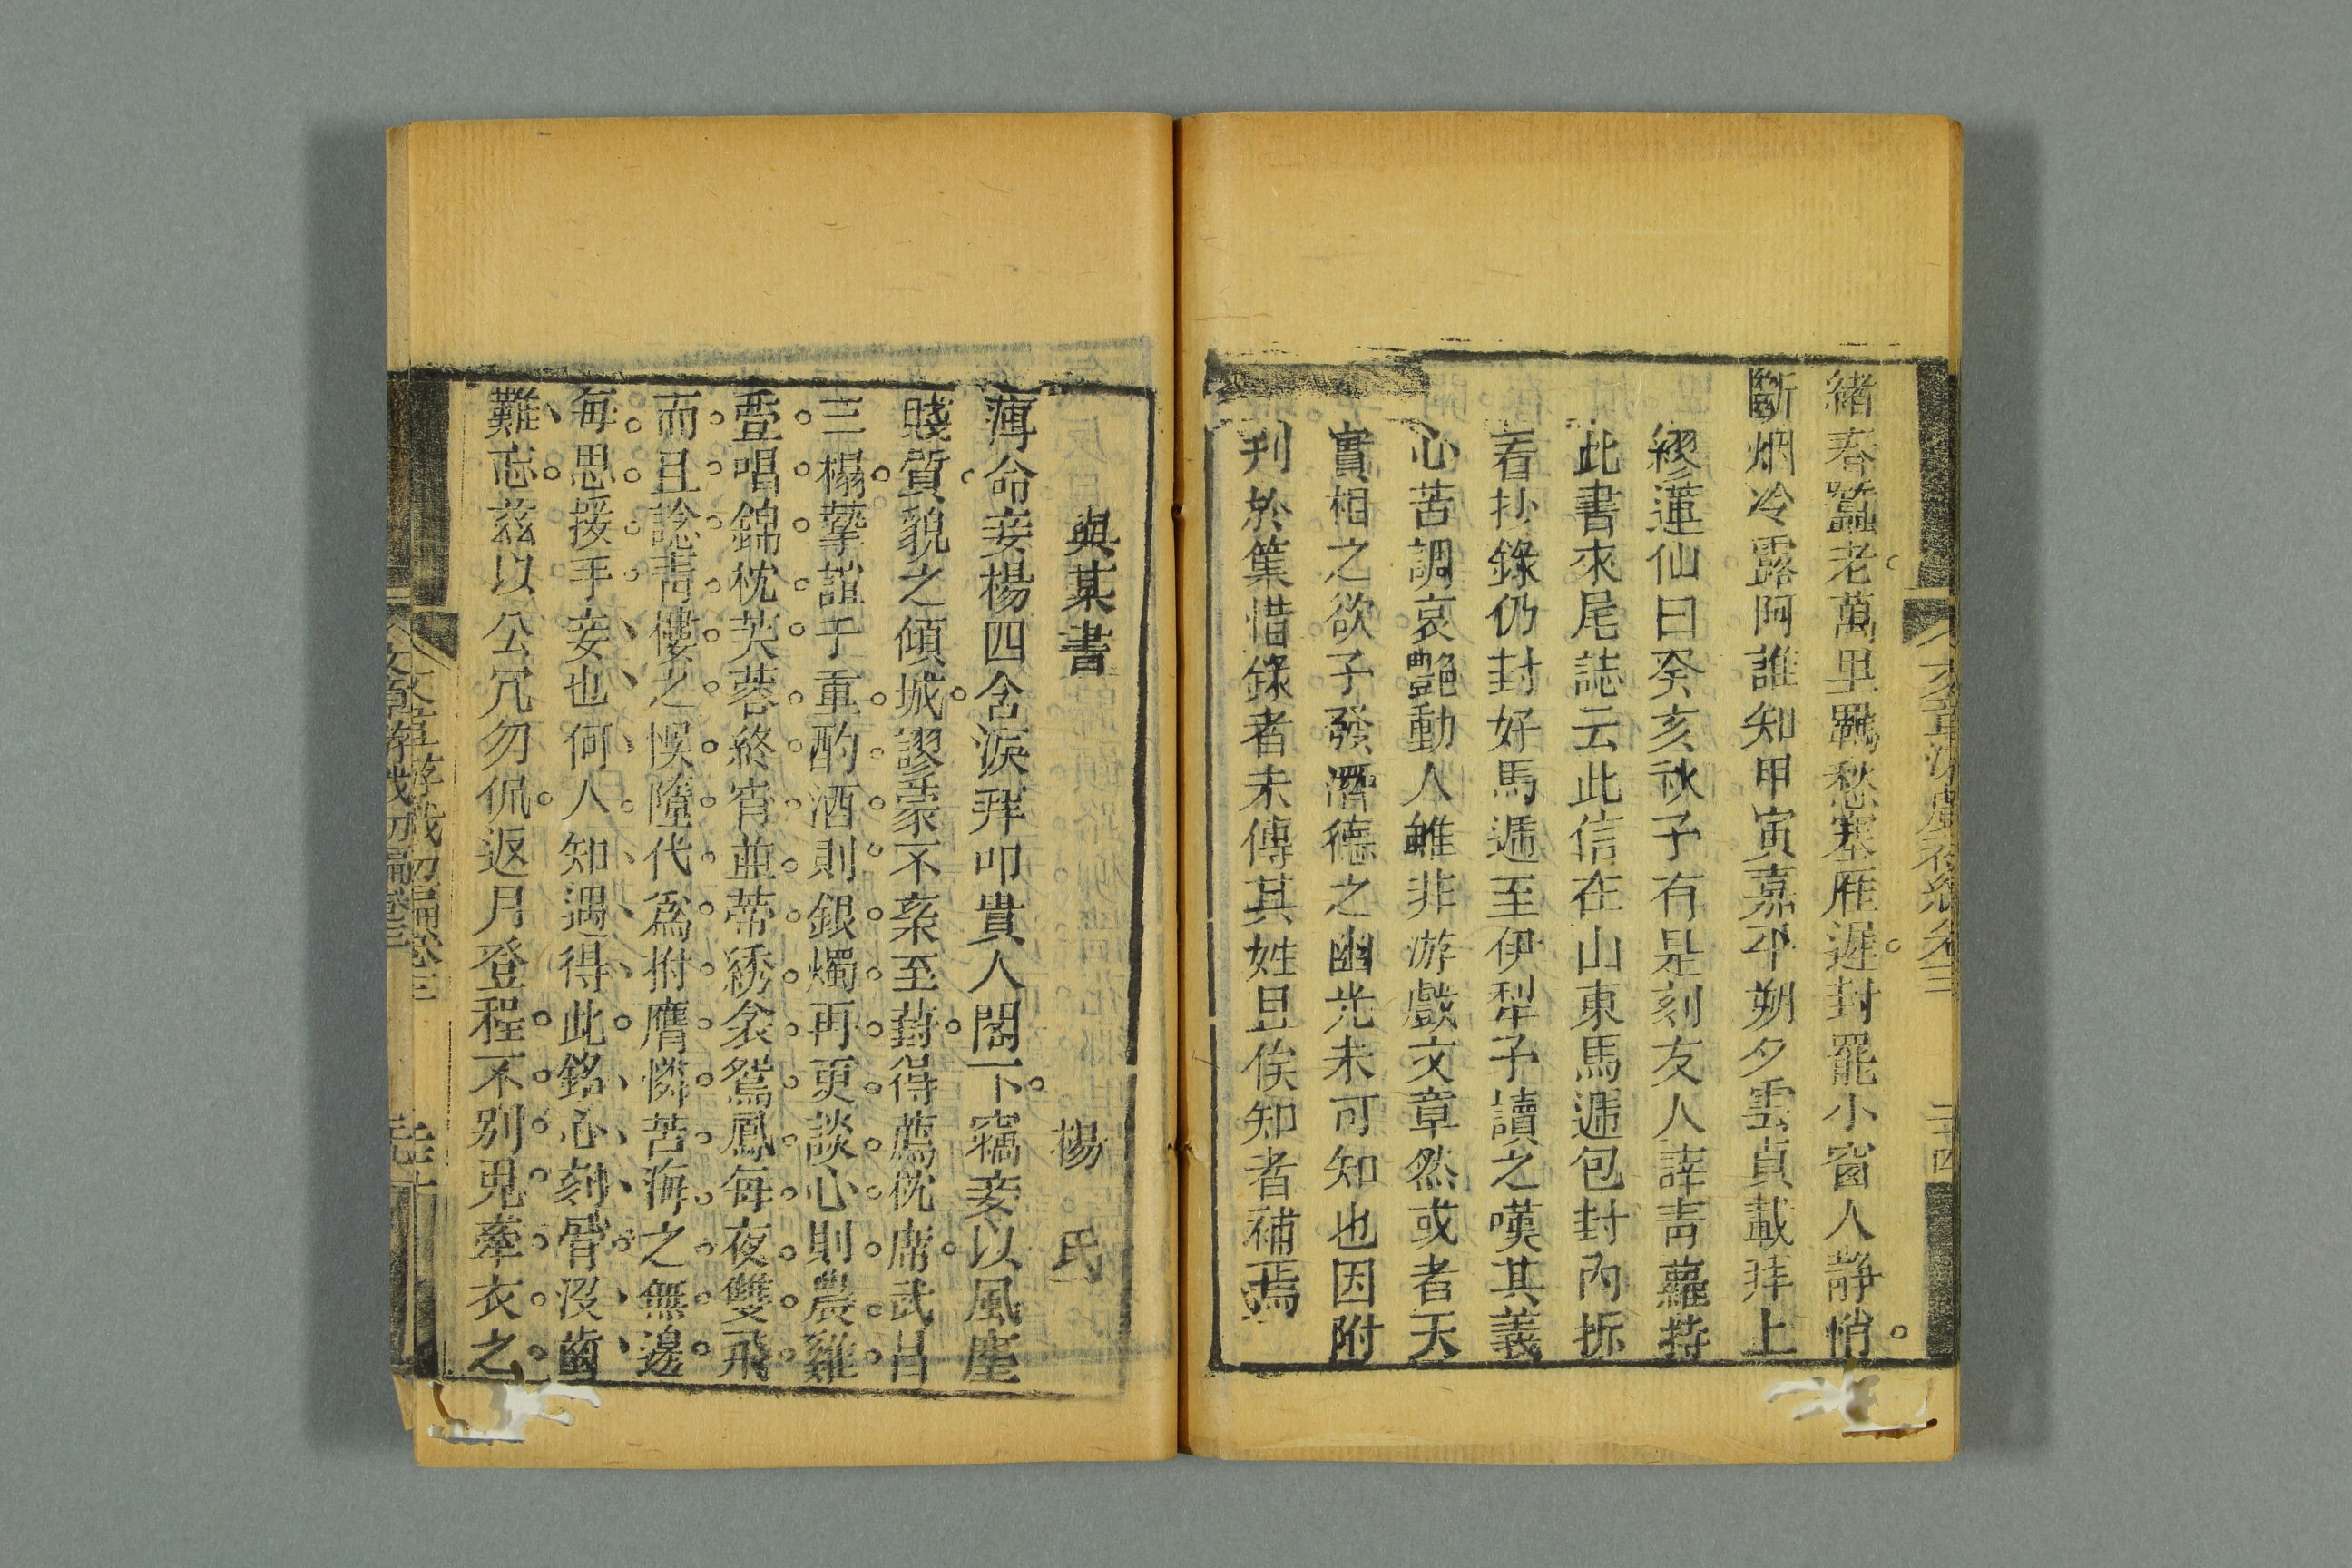 緒春蠶老萬里羈愁塞雁遲封罷小窗人静悄
斷烟冷露阿誰知甲寅嘉平朔夕雲貞載拜上
繆蓮仙曰癸亥秋予有是刻友人諱青蘿持
此書來尾誌云此信在山東馬遞包封內拆
看抄錄仍封好馬遞至伊犁予讀之嘆其義
心苦調哀艷動人雖非游戲文章然或者天
實相之欲予發濳德之幽光未可知也因附
刋於集惜錄者未傳其姓且俟知者補焉
與某書 楊氏
薄命妾楊四含淚拜叩貴人閣下竊妾以風塵
賤質貌之傾城謬蒙不棄至葑得薦枕席武昌
三榻摯誼千重酌酒則銀燭再更談心則農雞
疊唱錦枕芙蓉終宵並蒂綉衾鴛鳳每夜雙飛
而且諗靑樓之悞隨代爲拊膺憐苦海之無邊
每思援手妾也何人知遇得此銘心刻骨沒齒
難忘兹以公冗勿侷返月登程不别兎牽衣之
文章游戲初編卷三